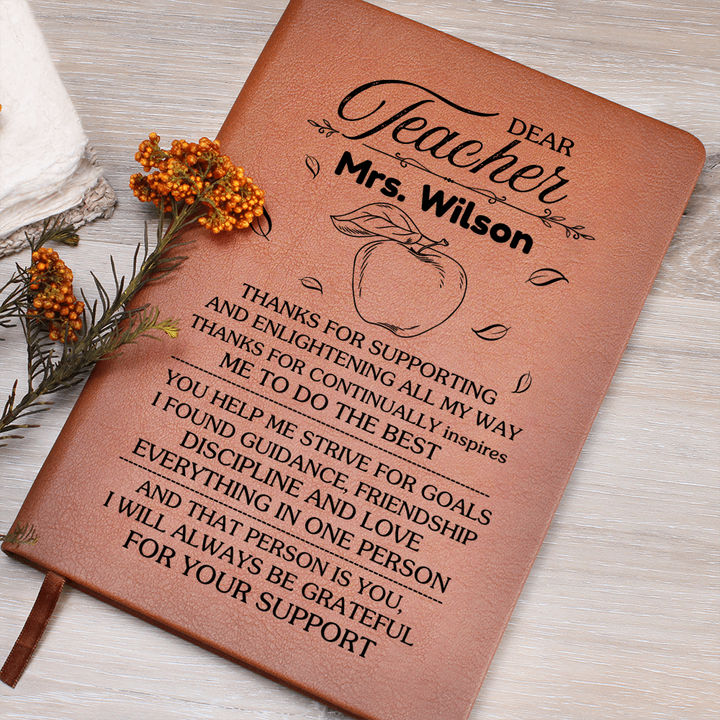 DEAR
Teacher
Mrs. Wilson
THANKS FOR SUPPORTING
AND ENLIGHTENING ALL MY WAY
THANKS FOR CONTINUALLY inspires
ME TO DO THE BEST
YOU HELP ME STRIVE FOR GOALS
I FOUND GUIDANCE, FRIENDSHIP
DISCIPLINE AND LOVE
EVERYTHING IN ONE PERSON
AND THAT PERSON IS YOU,
I WILL ALWAYS BE GRATEFUL
FOR YOUR SUPPORT